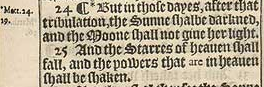 *Matt. 24.
29.
24 ¶ *But in those dayes, after that
tribulation, the Sunne shalbe darkned,
and the Moone shall not giue her light.
25 And the Starres of heauen shall
fall, and the powers that are in heauen
shall be shaken.